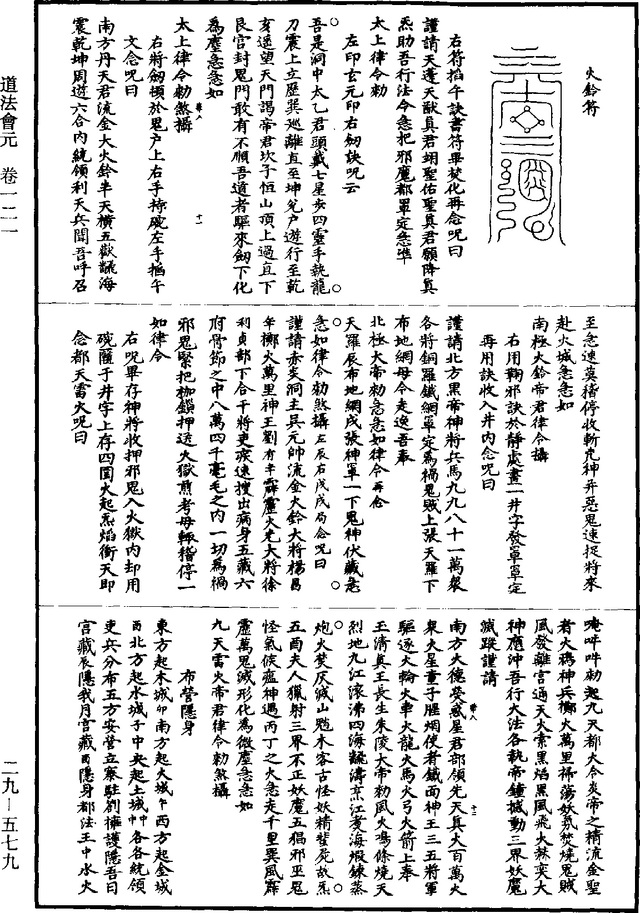 道法會元 卷一二一
二九—五七九
火鈴符
右符掐午訣書符畢焚化再念呪曰
謹請天蓬天猷真君翊聖佑聖真君願降真
炁助吾行法令急把邪魔都罩定急準
太上律令勅
左印玄元印右劒訣呪云
吾是洞中太乙君頭戴七星步四靈手執龍
刀震上立歷巽巡離直至坤兌戶遊行至乾
亥遙望天門謁帝君坎子恒山頂上過直下
艮宮封鬼門敢有不順吾道者驅來劒下化
為塵急急如
太上律令勅煞攝
右將劒頓於鬼戶上右手持碗左手掐午
文念呪曰
南方丹天君流金大火鈴半天橫五嶽翻海
震乾坤周遊六合內統領利天兵聞吾呼召
至急速莫稽停收斬尤神并惡鬼速捉將來
赴火城急急如
南極火鈴帝君律令攝
右用鞠邪訣於靜處畫一井字發罩罩定
再用訣收入井內念呪曰
謹請北方黑帝神將兵馬九九八十一萬衆
各將銅羅鐵網罩定為禍鬼賊上張天羅下
布地網毋令走透吾奉
北極大帝勅急急如律令再念
天羅辰布地網戌張神罩一下鬼神伏藏急
急如律令勅煞攝左辰右戌戌局念呪曰
謹請赤炎洞主吳元帥流金火鈴大將楊昌
年擲火萬里神王劉有年霹靂火光大將徐
利貞部下合干將吏疾速搜出病身五臟六
府骨節之中八萬四千毫毛之內一切為禍
邪鬼緊把枷鎖押送火獄煎考毋輒稽停一
如律令
右呪畢存神將收押邪鬼入火獄內却用
碗覆于井字上存四圍火起炁焰衝天即
念都天雷火呪曰
唵吽吽勅起九天都大令炎帝之精流金聖
者火鴉神兵擲火萬里掃蕩妖氛焚燒鬼賊
風發離宮通天火索黑焰黑風飛火㷋奕大
神應沖吾行大法各執帝鍾撼動三界妖魔
滅蹤謹請
南方火德熒惑星君部領先天真火百萬火
衆火星童子腥烟使者鐵面神王三五將軍
驅逐火輪火車火龍火馬火弓火箭上奉
玉清真王長生朱陵大帝勅風火鳴條燒天
烈地九江滾沸四海翻濤烹江煑海煆鍊蒸
炮火焚厌滅山魈木客古怪妖精蜚屍故炁
五酉夫人獵射三界不正妖魔五猖邪巫鬼
怪氣候瘟神遇丙丁之火急走千里巽風霹
靂萬鬼滅形化為微塵急急如
九天雷火帝君律令勅煞攝
布營隱身
東方起木城卯南方起火城午西方起金城
酉北方起水城子中央起土城中各各統領
吏兵分布五方安營立寨駐劄擁護隱吾曰
宮藏辰隱我月宮藏酉隱身都法王中水火